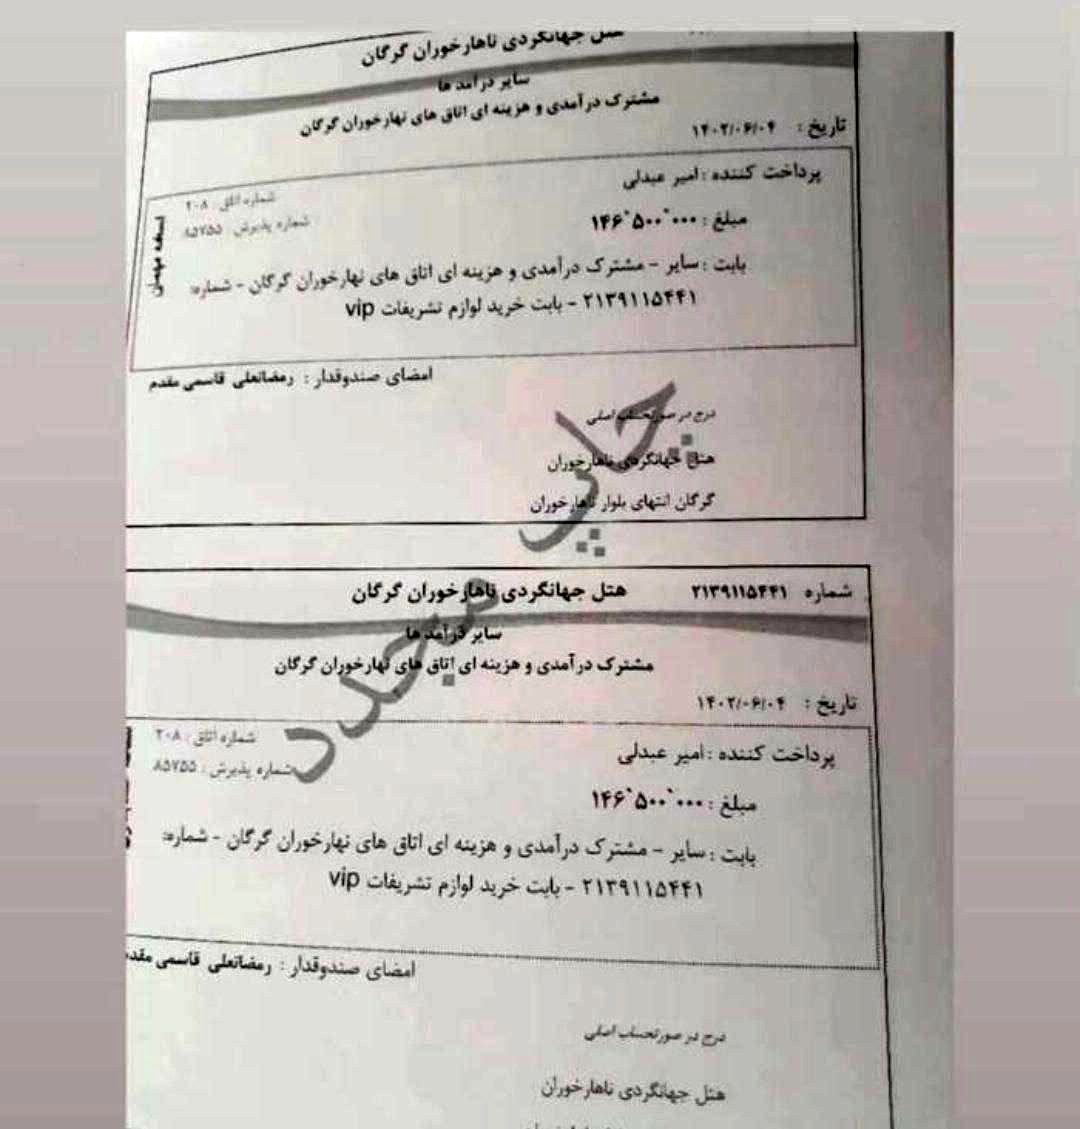 هتل جهانگردی ناهارخوران گرگان
سایر درآمدها
مشترک درآمدی و هزینه ای اتاق های نهارخوران گرگان
تاریخ : ۱۴۰۲/۰۶/۰۴
پرداخت کننده : امیر عبدلی
شماره اتاق : ۲۰۸
مبلغ : ۱۴۶٬۵۰۰٬۰۰۰
شماره پذیرش : ۸۵۷۵۵
نسخه میهمان
بابت : سایر - مشترک درآمدی و هزینه ای اتاق های نهارخوران گرگان - شماره:
۲۱۳۹۱۱۵۴۴۱ - بابت خرید لوازم تشریفات vip
امضای صندوقدار : رمضانعلی قاسمی مقدم
درج در صورتحساب اصلی
هتل جهانگردی ناهارخوران
گرگان انتهای بلوار ناهارخوران
چاپ مجدد
شماره ۲۱۳۹۱۱۵۴۴۱ هتل جهانگردی ناهارخوران گرگان
سایر درآمدها
مشترک درآمدی و هزینه ای اتاق های نهارخوران گرگان
تاریخ : ۱۴۰۲/۰۶/۰۴
پرداخت کننده : امیر عبدلی
شماره اتاق : ۲۰۸
مبلغ : ۱۴۶٬۵۰۰٬۰۰۰
شماره پذیرش : ۸۵۷۵۵
بابت : سایر - مشترک درآمدی و هزینه ای اتاق های نهارخوران گرگان - شماره:
۲۱۳۹۱۱۵۴۴۱ - بابت خرید لوازم تشریفات vip
امضای صندوقدار : رمضانعلی قاسمی مقدم
درج در صورتحساب اصلی
هتل جهانگردی ناهارخوران